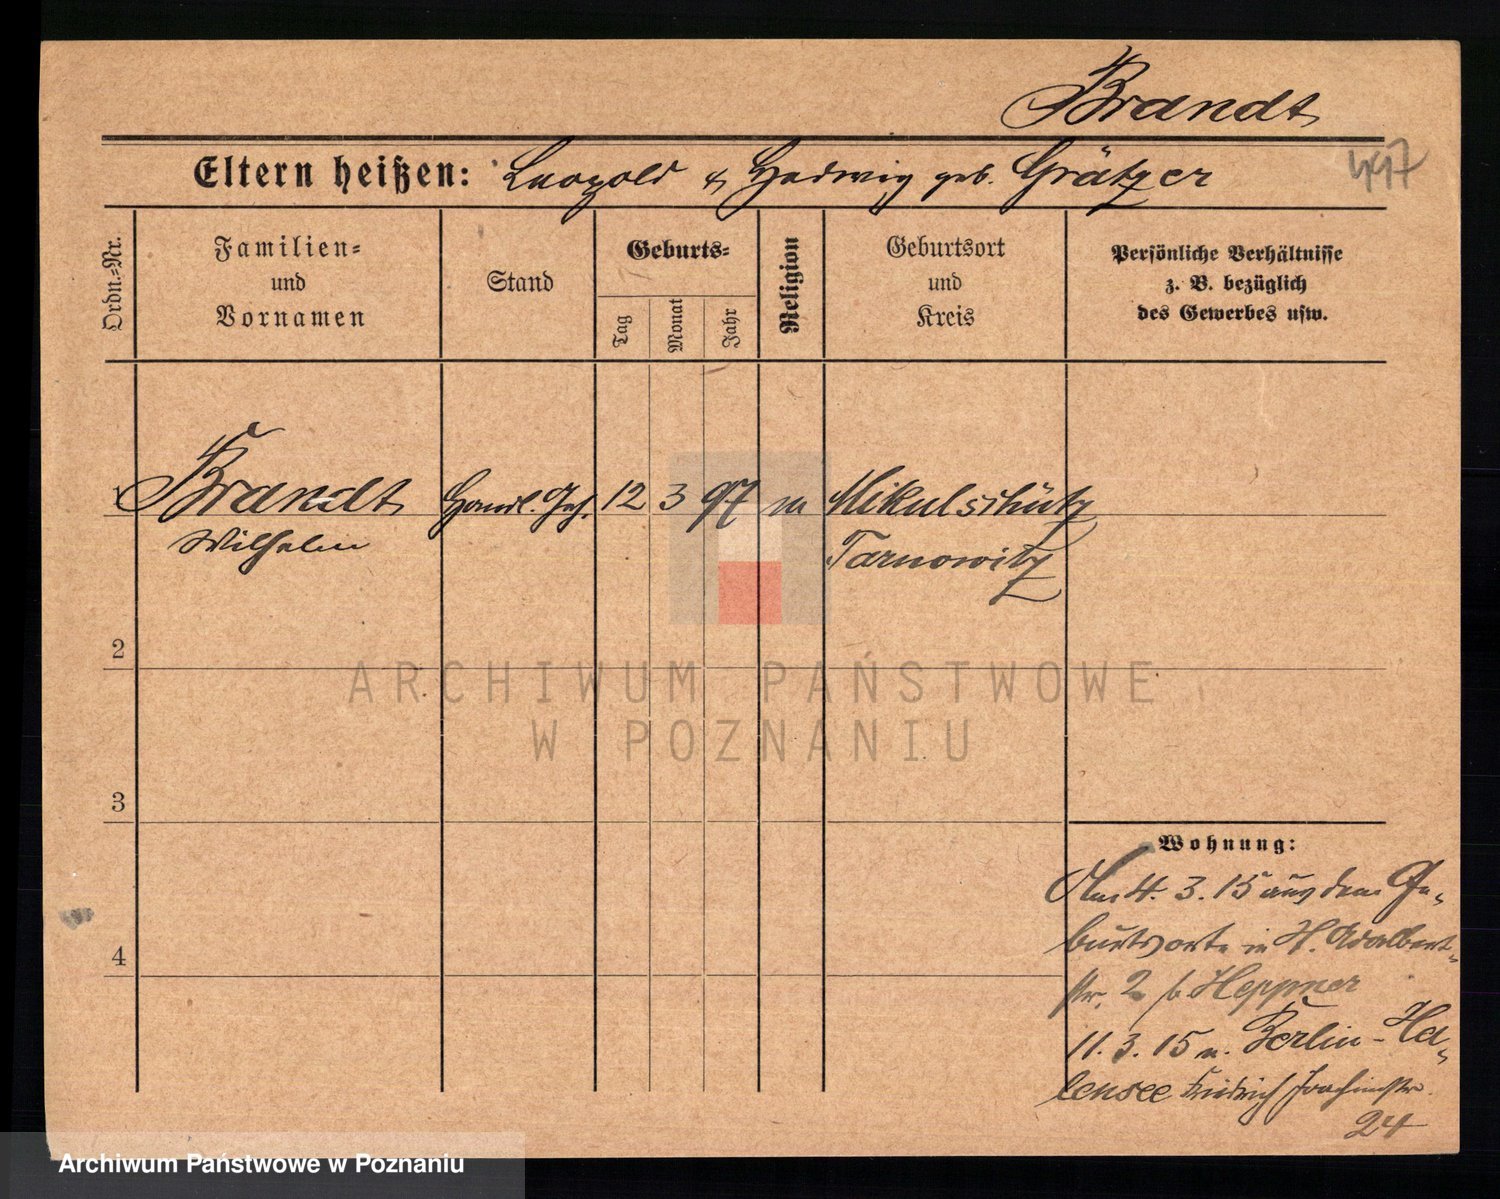 Brandt
497
Eltern heißen: Leopold & Hedwig geb. Grätzer
Ordn.=Nr.
Familien=
und
Vornamen
Stand
Geburts=
Tag
Monat
Jahr
Religion
Geburtsort
und
Kreis
Persönliche Verhältnisse
z. B. bezüglich
des Gewerbes usw.
1 Brandt Handl. Geh. 12 3 97 m Mikulschütz
Wilhelm Tarnowitz
2
3
4
ARCHIWUM PAŃSTWOWE
W POZNANIU
Wohnung:
Am 4. 3. 15 aus dem Ge-
burtsorte in H. Adalbert-
str. 2 b Heppner
11. 3. 15 n. Berlin-Ha-
lensee Friedrich Joachimstr.
24
Archiwum Państwowe w Poznaniu